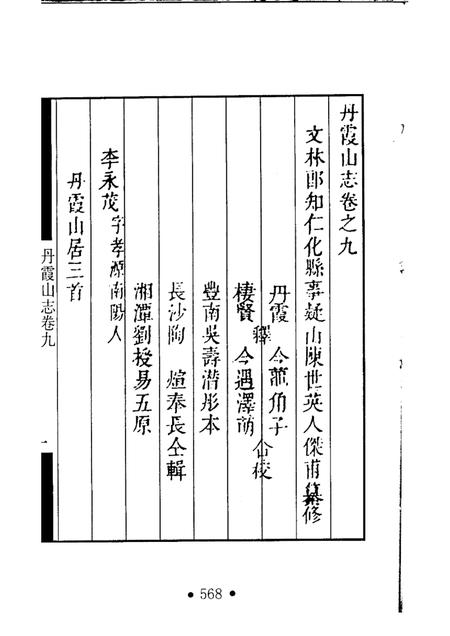 丹霞山志卷之九
文林郎知仁化縣事疑山陳世英人傑甫纂修
丹霞 釋 今 角子
棲賢 今遇澤萌 仝校
豐南吳壽潛彤本
長沙陶 煊奉長仝輯
湘潭劉授易五原
李永茂字孝源南陽人
丹霞山居三首
丹霞山志卷九
一
• 568 •